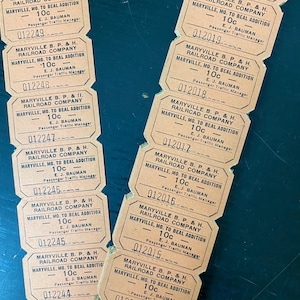 RAILROAD COMPANY
MARYVILLE, MO. TO BEAL ADDITION
10c
E. J. BAUMAN
Passenger Traffic Manager
012249
MARYVILLE B. P. & H.
RAILROAD COMPANY
MARYVILLE, MO. TO BEAL ADDITION
10c
E. J. BAUMAN
Passenger Traffic Manager
012248
MARYVILLE B. P. & H.
RAILROAD COMPANY
MARYVILLE, MO. TO BEAL ADDITION
10c
E. J. BAUMAN
Passenger Traffic Manager
012247
MARYVILLE B. P. & H.
RAILROAD COMPANY
MARYVILLE, MO. TO BEAL ADDITION
10c
E. J. BAUMAN
Passenger Traffic Manager
012246
MARYVILLE B. P. & H.
RAILROAD COMPANY
MARYVILLE, MO. TO BEAL ADDITION
10c
E. J. BAUMAN
Passenger Traffic Manager
012245
MARYVILLE B. P. & H.
RAILROAD COMPANY
MARYVILLE, MO. TO BEAL ADDITION
10c
E. J. BAUMAN
Passenger Traffic Manager
012244
RAILROAD COMPANY
MARYVILLE, MO. TO BEAL ADDITION
10c
E. J. BAUMAN
012019
MARYVILLE B. P. & H.
RAILROAD COMPANY
MARYVILLE, MO. TO BEAL ADDITION
10c
E. J. BAUMAN
012018
MARYVILLE B. P. & H.
RAILROAD COMPANY
MARYVILLE, MO. TO BEAL ADDITION
10c
E. J. BAUMAN
Passenger Traffic Manager
012017
MARYVILLE B. P. & H.
RAILROAD COMPANY
MARYVILLE, MO. TO BEAL ADDITION
10c
E. J. BAUMAN
Passenger Traffic Manager
012016
MARYVILLE B. P. & H.
RAILROAD COMPANY
MARYVILLE, MO. TO BEAL ADDITION
10c
E. J. BAUMAN
Passenger Traffic Manager
012015
MARYVILLE B. P. & H.
RAILROAD COMPANY
MARYVILLE, MO. TO BEAL ADDITION
10c
E. J. BAUMAN